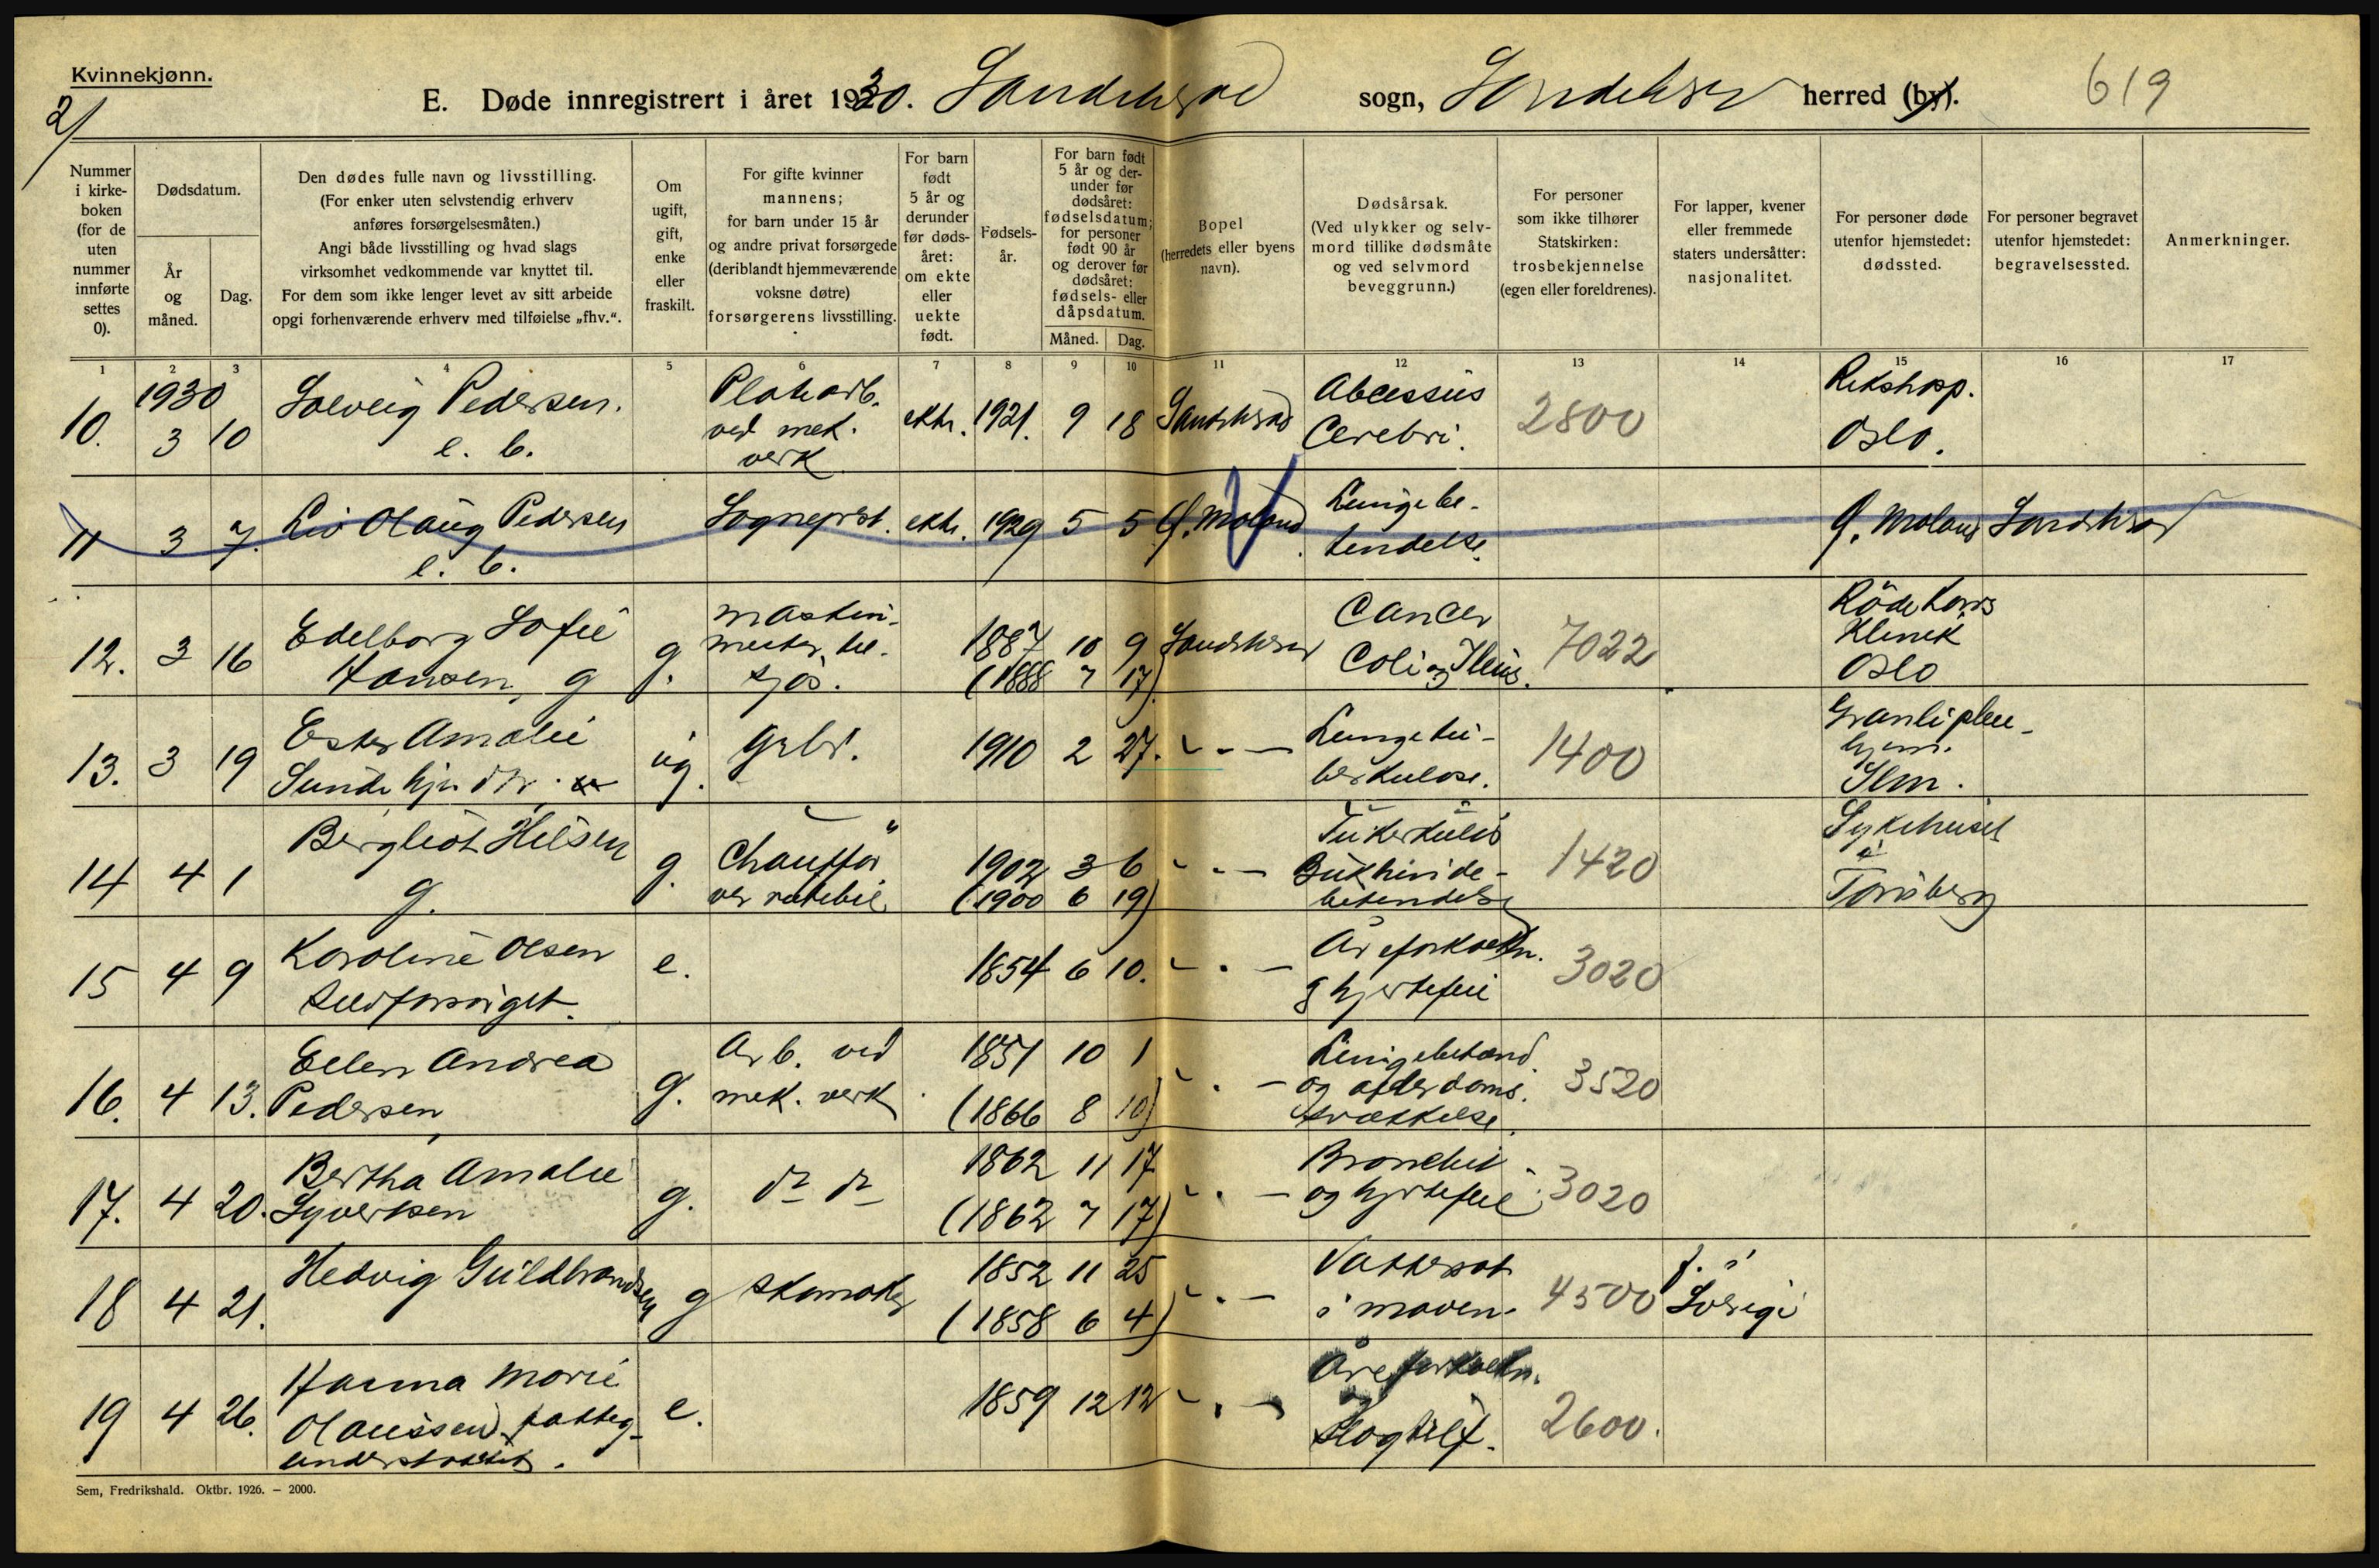 Kvinnekjønn.
2/
E. Døde innregistrert i året 1930. Sandeherad sogn, Sandeherad herred (by).
619
Nummer i kirke-boken (for de uten nummer innførte settes 0).
Dødsdatum.
År og måned.
Dag.
Den dødes fulle navn og livsstilling.
(For enker uten selvstendig erhverv
anføres forsørgelsesmåten.)
Angi både livsstilling og hvad slags
virksomhet vedkommende var knyttet til.
For dem som ikke lenger levet av sitt arbeide
opgi forhenværende erhverv med tilføielse „fhv.“.
Om ugift, gift, enke eller fraskilt.
For gifte kvinner
mannens;
for barn under 15 år
og andre privat forsørgede
(deriblandt hjemmeværende
voksne døtre)
forsørgerens livsstilling.
For barn født 5 år og derunder før døds-året: om ekte eller uekte født.
Fødsels-år.
For barn født 5 år og der-under før dødsåret: fødselsdatum; for personer født 90 år og derover før dødsåret: fødsels- eller dåpsdatum.
Måned.
Dag.
Bopel
(herredets eller byens
navn).
Dødsårsak.
(Ved ulykker og selv-
mord tillike dødsmåte
og ved selvmord
beveggrunn.)
For personer
som ikke tilhører
Statskirken:
trosbekjennelse
(egen eller foreldrenes).
For lapper, kvener
eller fremmede
staters undersåtter:
nasjonalitet.
For personer døde
utenfor hjemstedet:
dødssted.
For personer begravet
utenfor hjemstedet:
begravelsessted.
Anmerkninger.
1 2 3 4 5 6 7 8 9 10 11 12 13 14 15 16 17
1930
10. 3 10 Solveig Pedersen. e. b. Platearb. ved mek. verk ekte. 1921. 9 18 Sandeherad Abcessus Cerebri. 2800 Rikshosp. Oslo.
11 3 7. Liv Olaug Pedersen e. b. Sogneprest. ekte. 1929 5 5 Ø. Moland Lungebe-tendelse. Ø. Moland Sandeherad
12. 3 16 Edelborg Sofie Hansen, g g. maskin-mester til sjøs. 1887 10 9 (1888 7 17) Sandeherad Cancer Coli og Ileus. 7022 Röde Kors Klinik Oslo
13. 3 19 Ester Amalie Sunde hj. dtr. ug. Grbr. 1910 2 27. " - — Lungetu-berkulose. 1400 Granli pleie-hjem. Sem.
14 4 1 Bergliot Nilsen g. g. Chauffør ved rutebil 1902 3 6 (1900 6 19) " - — Tuberkuløs Bukhinde-betendelse 1420 Sykehuset i Tønsberg
15 4 9 Karoline Olsen selvforsørget. e. 1854 6 10. " - — Åreforkalkn. og hjertefeil 3020
16. 4 13. Ellen Andrea Pedersen, g. Arb. ved mek. verk 1851 10 1 (1866 8 10) " - — Lungebetænd. og alderdoms. svækkelse. 3520
17. 4 20. Bertha Amalie Syvertsen g. do do 1862 11 17 (1862 7 17) " - — Bronchit og hjertefeil. 3020
18 4 21. Hedvig Guldbrandsen g skomaker 1852 11 25 (1858 6 4) " - — Vattersot i maven. 4500 f. i Sverige
19 4 26. Hanna Marie Olaussen. fattig-understøttet. e. 1859 12 12 " - — Åreforkalkn. og slagtilf. 2600.
Sem, Fredrikshald. Oktbr. 1926. — 2000.